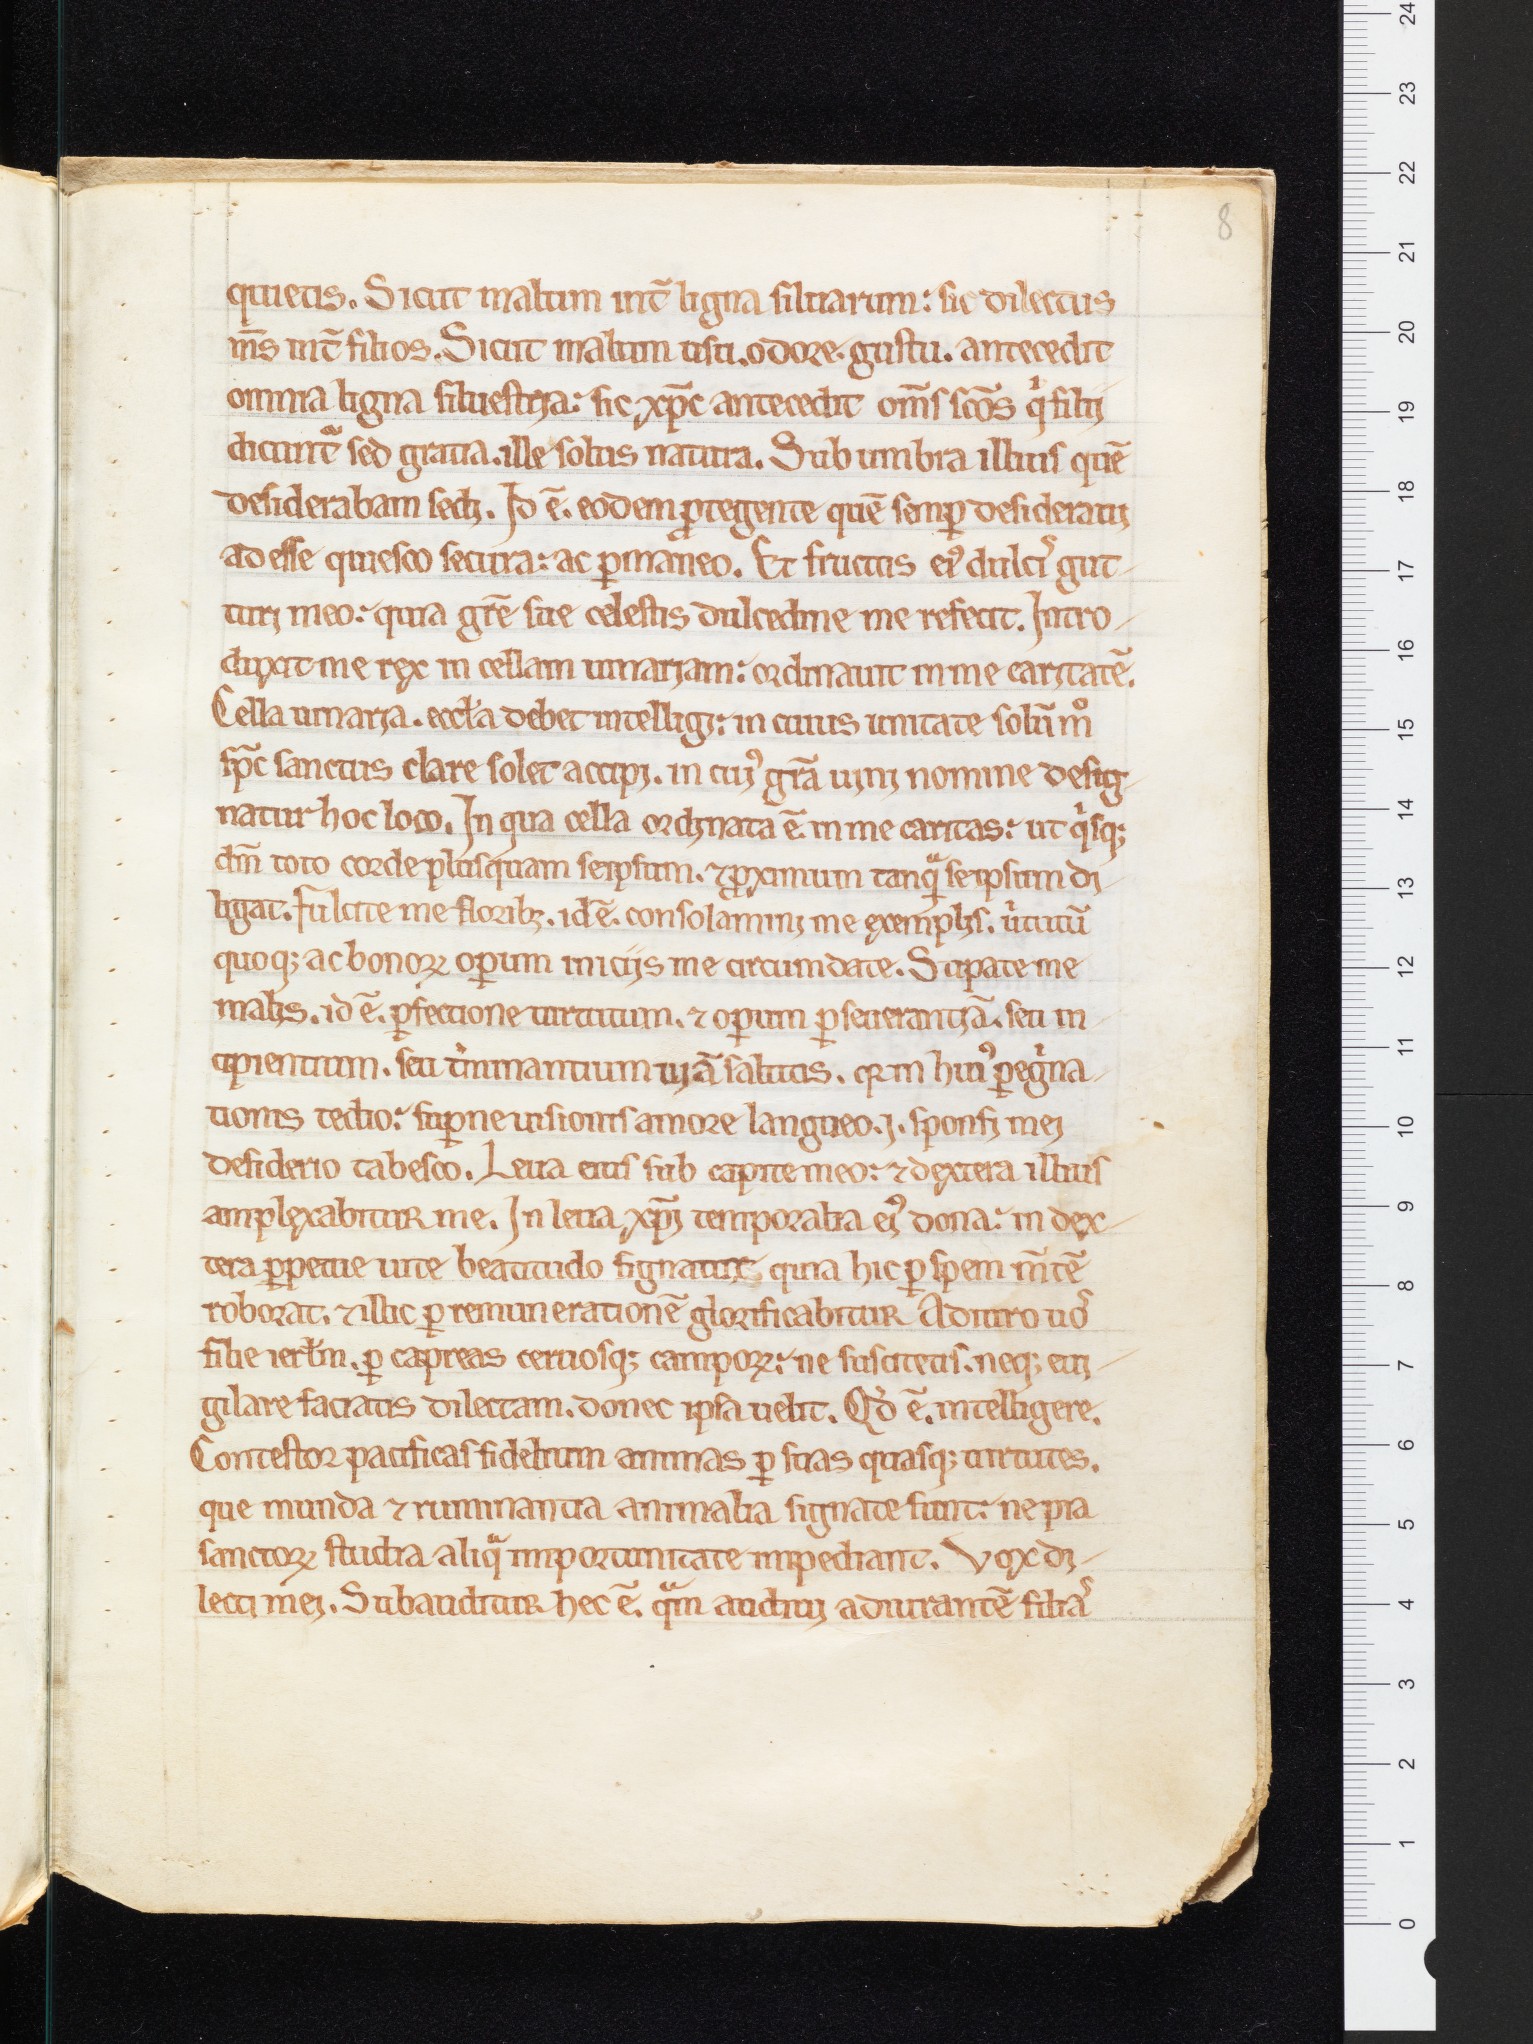 8
quietis. Sicut malum int̄ ligna siluarum: sic dilectus
m̄s int̄ filios. Sicut malum usu. odore. gustu. antecedit
omnia ligna siluestria: sic xp̄c antecedit om̄s sc̄os qͥ filij
dicunt̄ᷓ sed gratia. ille solus natura. Sub umbra illius quē
desiderabam sedi. Id ē. eodem ꝓtegente quē semꝑ desideraui
adesse quiesco secura: ac ꝑmaneo. Et fructus ei᷒ dulcis gut-
turi meo: quia gr̄e sue celestis dulcedine me refecit. Intro-
duxit me rex in cellam uinariam: ordinauit in me caritatē.
Cella uinaria. eccl̄a debet intelligi: in cuius unitate solū mͦ
sp̄c sanctus clare solet accipi. in cui᷒ gr̄a uini nomine desig-
natur hoc loco. In qua cella ordinata ē. in me caritas: ut qͥsq;
dm̄ toto corde plusquam seipsum. ⁊ ꝓximum tanqᷓ seipsum di-
ligat. Fulcite me floribꝫ. id ē. consolamini me exemplis. uͥtutū
quoq; ac bonoꝝ oꝑum iniciis me circumdate. Stipate me
malis. id ē. ꝑfectione uirtutum. ⁊ oꝑum ꝑseuerantiā. seu in-
cipientium. seu t̾minantium uiā salutis. qr in hui᷒ ꝑegͥna-
tionis tedio: suꝑne uisionis amore langueo. i. sponsi mei
desiderio tabesco. Leua eius sub capite meo: ⁊ dextera illius
amplexabitur me. In leua xp̄i temporalia ei᷒ dona: in dex-
tera ꝑpetue uite beatitudo signatur quia hic ꝑ spem m̄tē
roborat. ⁊ illic ꝑ remunerationē glorificabitur Adiuro uos
filie ierl̄m. ꝑ capreas ceruosq; campoꝝ: ne suscitetis. neq; eui-
gilare faciatis dilectam. donec ipsa uelit. Qd̾ ē. intelligere.
Contestor pacificas fidelium animas ꝑ suas quasq; uirtutes.
que munda ⁊ ruminantia animalia signate sunt: ne pia
sanctoꝝ studia aliqᷓ importunitate impediant. Vox di-
lecti mei. Subauditur hec ē. qᷓm audiui adiurantē filias